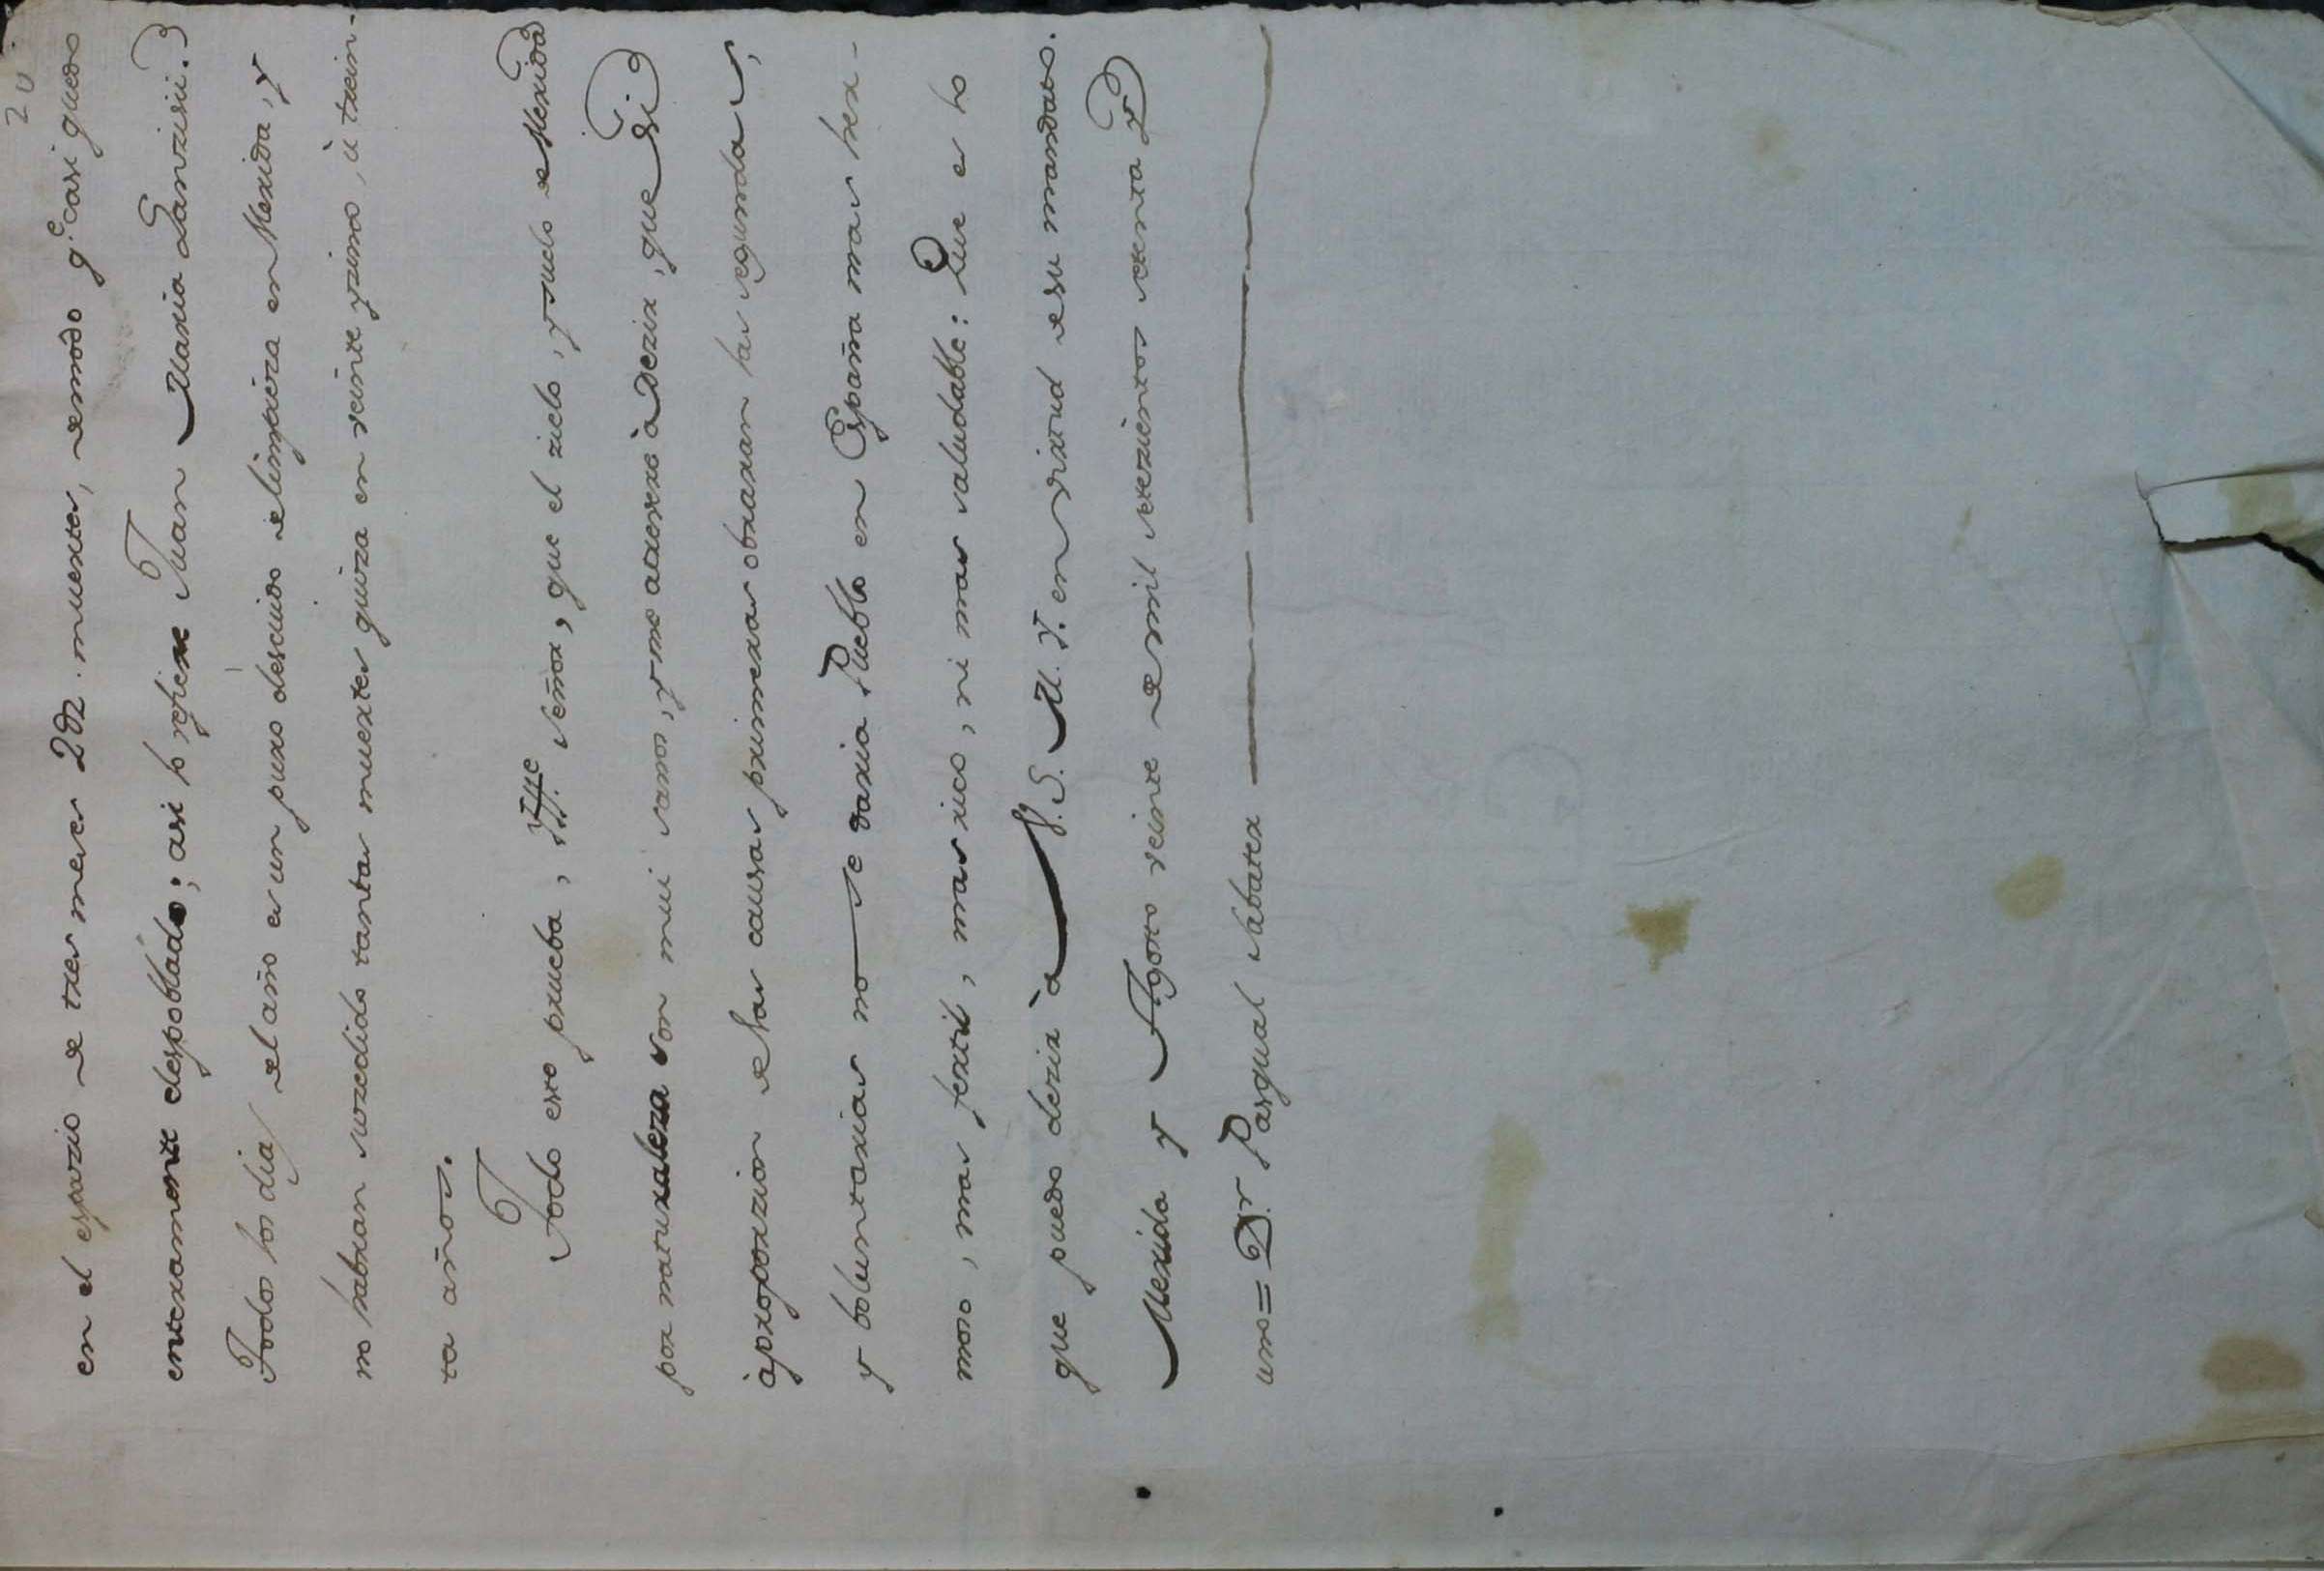 20
en el espazio de tres meses 202. muertes, demodo q.e casi quedo
enteramente despoblado; asi lo refiere Juan Maria Lanzisii.
Todos los dias del año es un puro descuido de limpieza en Merida, y
no habran suzedido tantas muertes quiza en veinte y zinco, ù trein-
ta años.
Todo esto prueba, Ill.e Señor, que el zielo, y suelo de Merida
por naturaleza son mui sanos, y me atrevere à dezir, que si
àproporzion de las causas primeras obraran las segundas,
y boluntarias no se daria Pueblo en España mas her-
moso, mas fertil, mas rico, ni mas saludable: Que es lo
que puedo dezir à V.S.M.Y. en virtud de su mandato.
Merida y Agosto veinte de mil setezientos setenta y
uno = D.r Pasqual Sabater